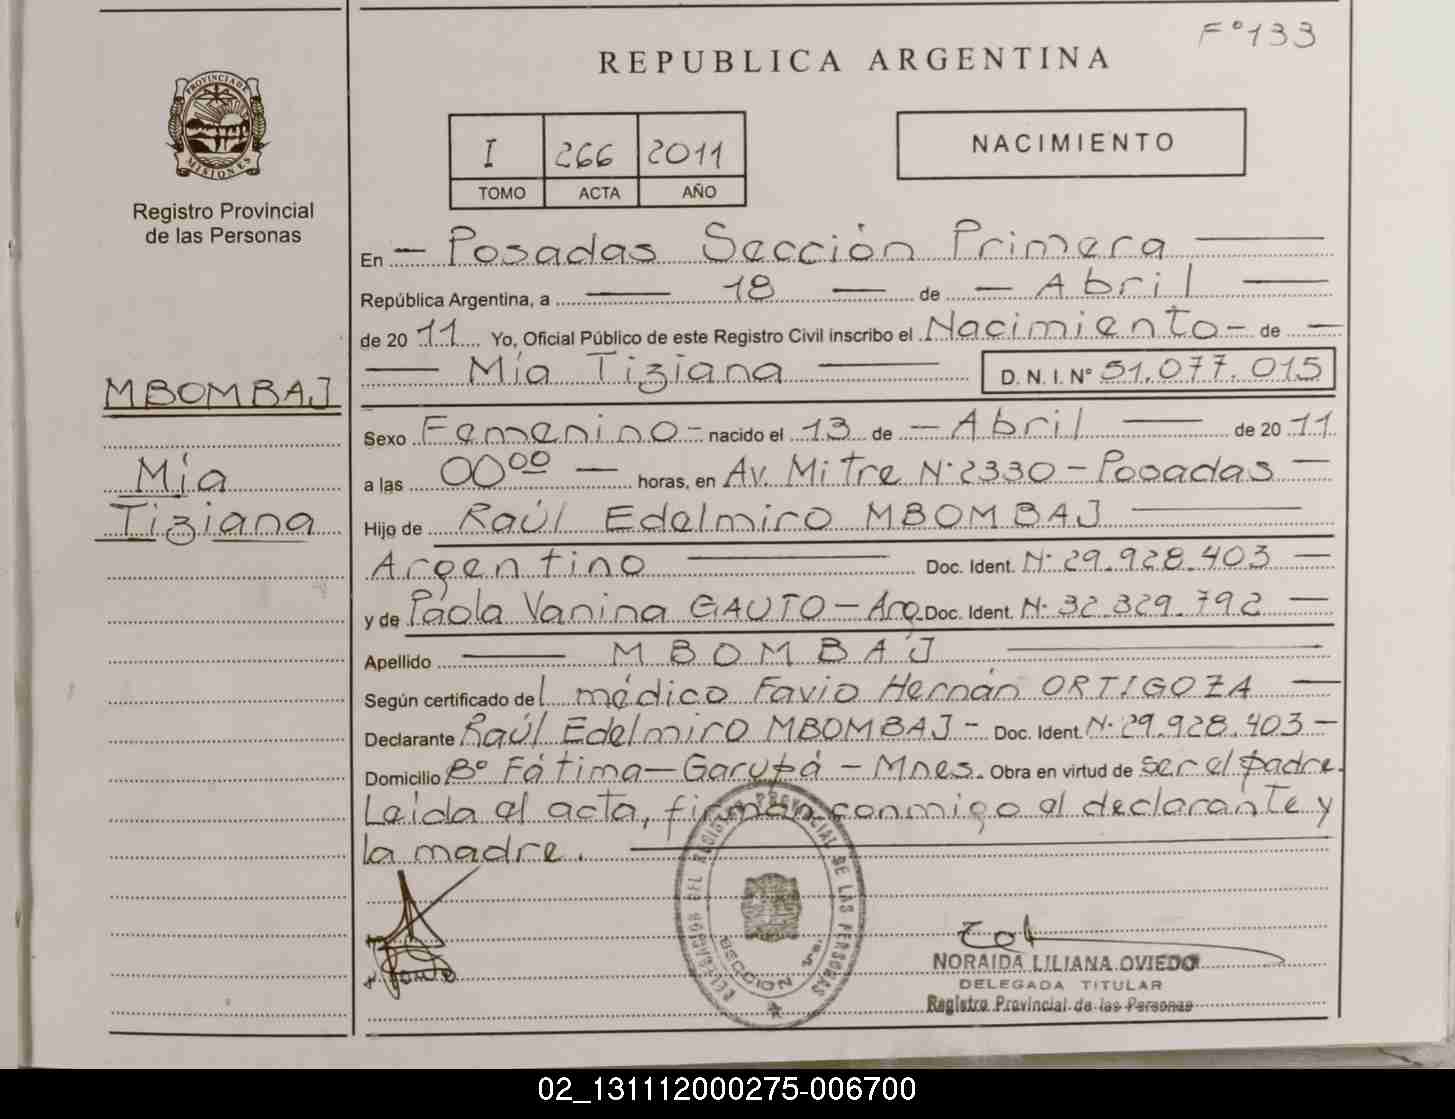 Fº 133
REPUBLICA ARGENTINA
PROVINCIA DE MISIONES
Registro Provincial
de las Personas
I 266 2011
TOMO ACTA AÑO
NACIMIENTO
MBOMBAJ
Mía
Tiziana
En — Posadas Sección Primera —
República Argentina, a — 18 — de — Abril —
de 2011 Yo, Oficial Público de este Registro Civil inscribo el Nacimiento — de —
— Mía Tiziana — D. N. I. Nº 51.077.015
Sexo Femenino — nacido el 13 de — Abril — de 2011
a las 00ºº — horas, en Av. Mitre Nº 2330 — Posadas —
Hijo de Raúl Edelmiro MBOMBAJ —
Argentino — Doc. Ident. Nº 29.928.403 —
y de Paola Vanina GAUTO — Arg. Doc. Ident. Nº 32.329.792 —
Apellido — MBOMBAJ —
Según certificado del médico Favio Hernán ORTIGOZA —
Declarante Raúl Edelmiro MBOMBAJ — Doc. Ident. Nº 29.928.403 —
Domicilio Bº Fátima — Garupá — Mnes. Obra en virtud de ser el padre.
Leída el acta, firman conmigo el declarante y
la madre. —
DELEGACION DEL REGISTRO PROVINCIAL DE LAS PERSONAS
SECCION 1ra.
NORAIDA LILIANA OVIEDO
DELEGADA TITULAR
Registro Provincial de las Personas
02_131112000275-006700